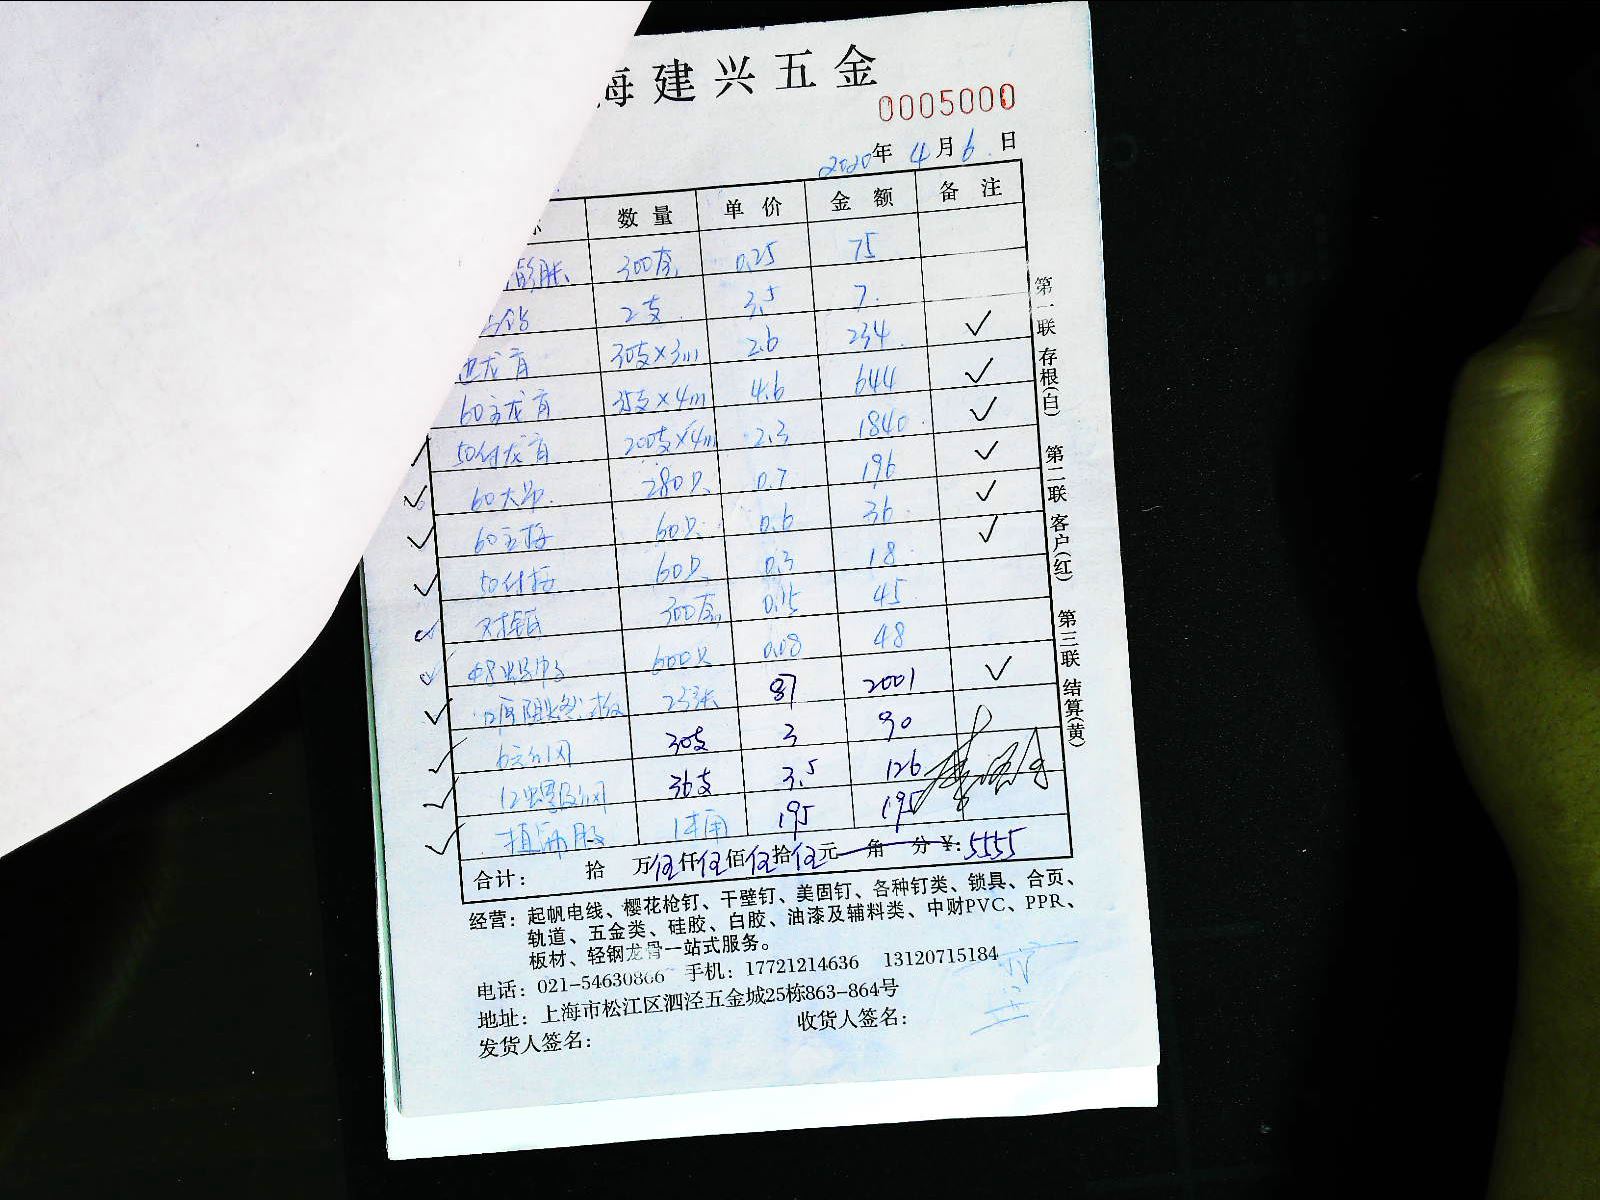 海建兴五金
0005000
2020年 4月 6日
数量 单价 金额 备注
300套 0.25 75
2支 3.5 7.
龙骨 30支×3m 2.6 234 ✓
60主龙骨 35支×4m 4.6 644 ✓
✓ 50付龙骨 200支×4m 2.3 1840 ✓
✓ 60大吊 280只 0.7 196 ✓
✓ 60主接 60只 0.6 36 ✓
✓ 50付接 60只 0.3 18 ✓
300套 0.15 45
600只 0.08 48
✓ 12厘阻燃板 23张 87 2001 ✓
✓ 30支 3 90
✓ 36支 3.5 126
✓ 195 195
合计: 拾 万伍仟伍佰伍拾伍元 角 分 ¥:5555
经营: 起帆电线、樱花枪钉、干壁钉、美固钉、各种钉类、锁具、合页、
轨道、五金类、硅胶、白胶、油漆及辅料类、中财PVC、PPR、
板材、轻钢龙骨一站式服务。
电话: 021-54630866 手机: 17721214636 13120715184
地址: 上海市松江区泗泾五金城25栋863-864号
发货人签名: 收货人签名:
第一联 存根(白) 第二联 客户(红) 第三联 结算(黄)